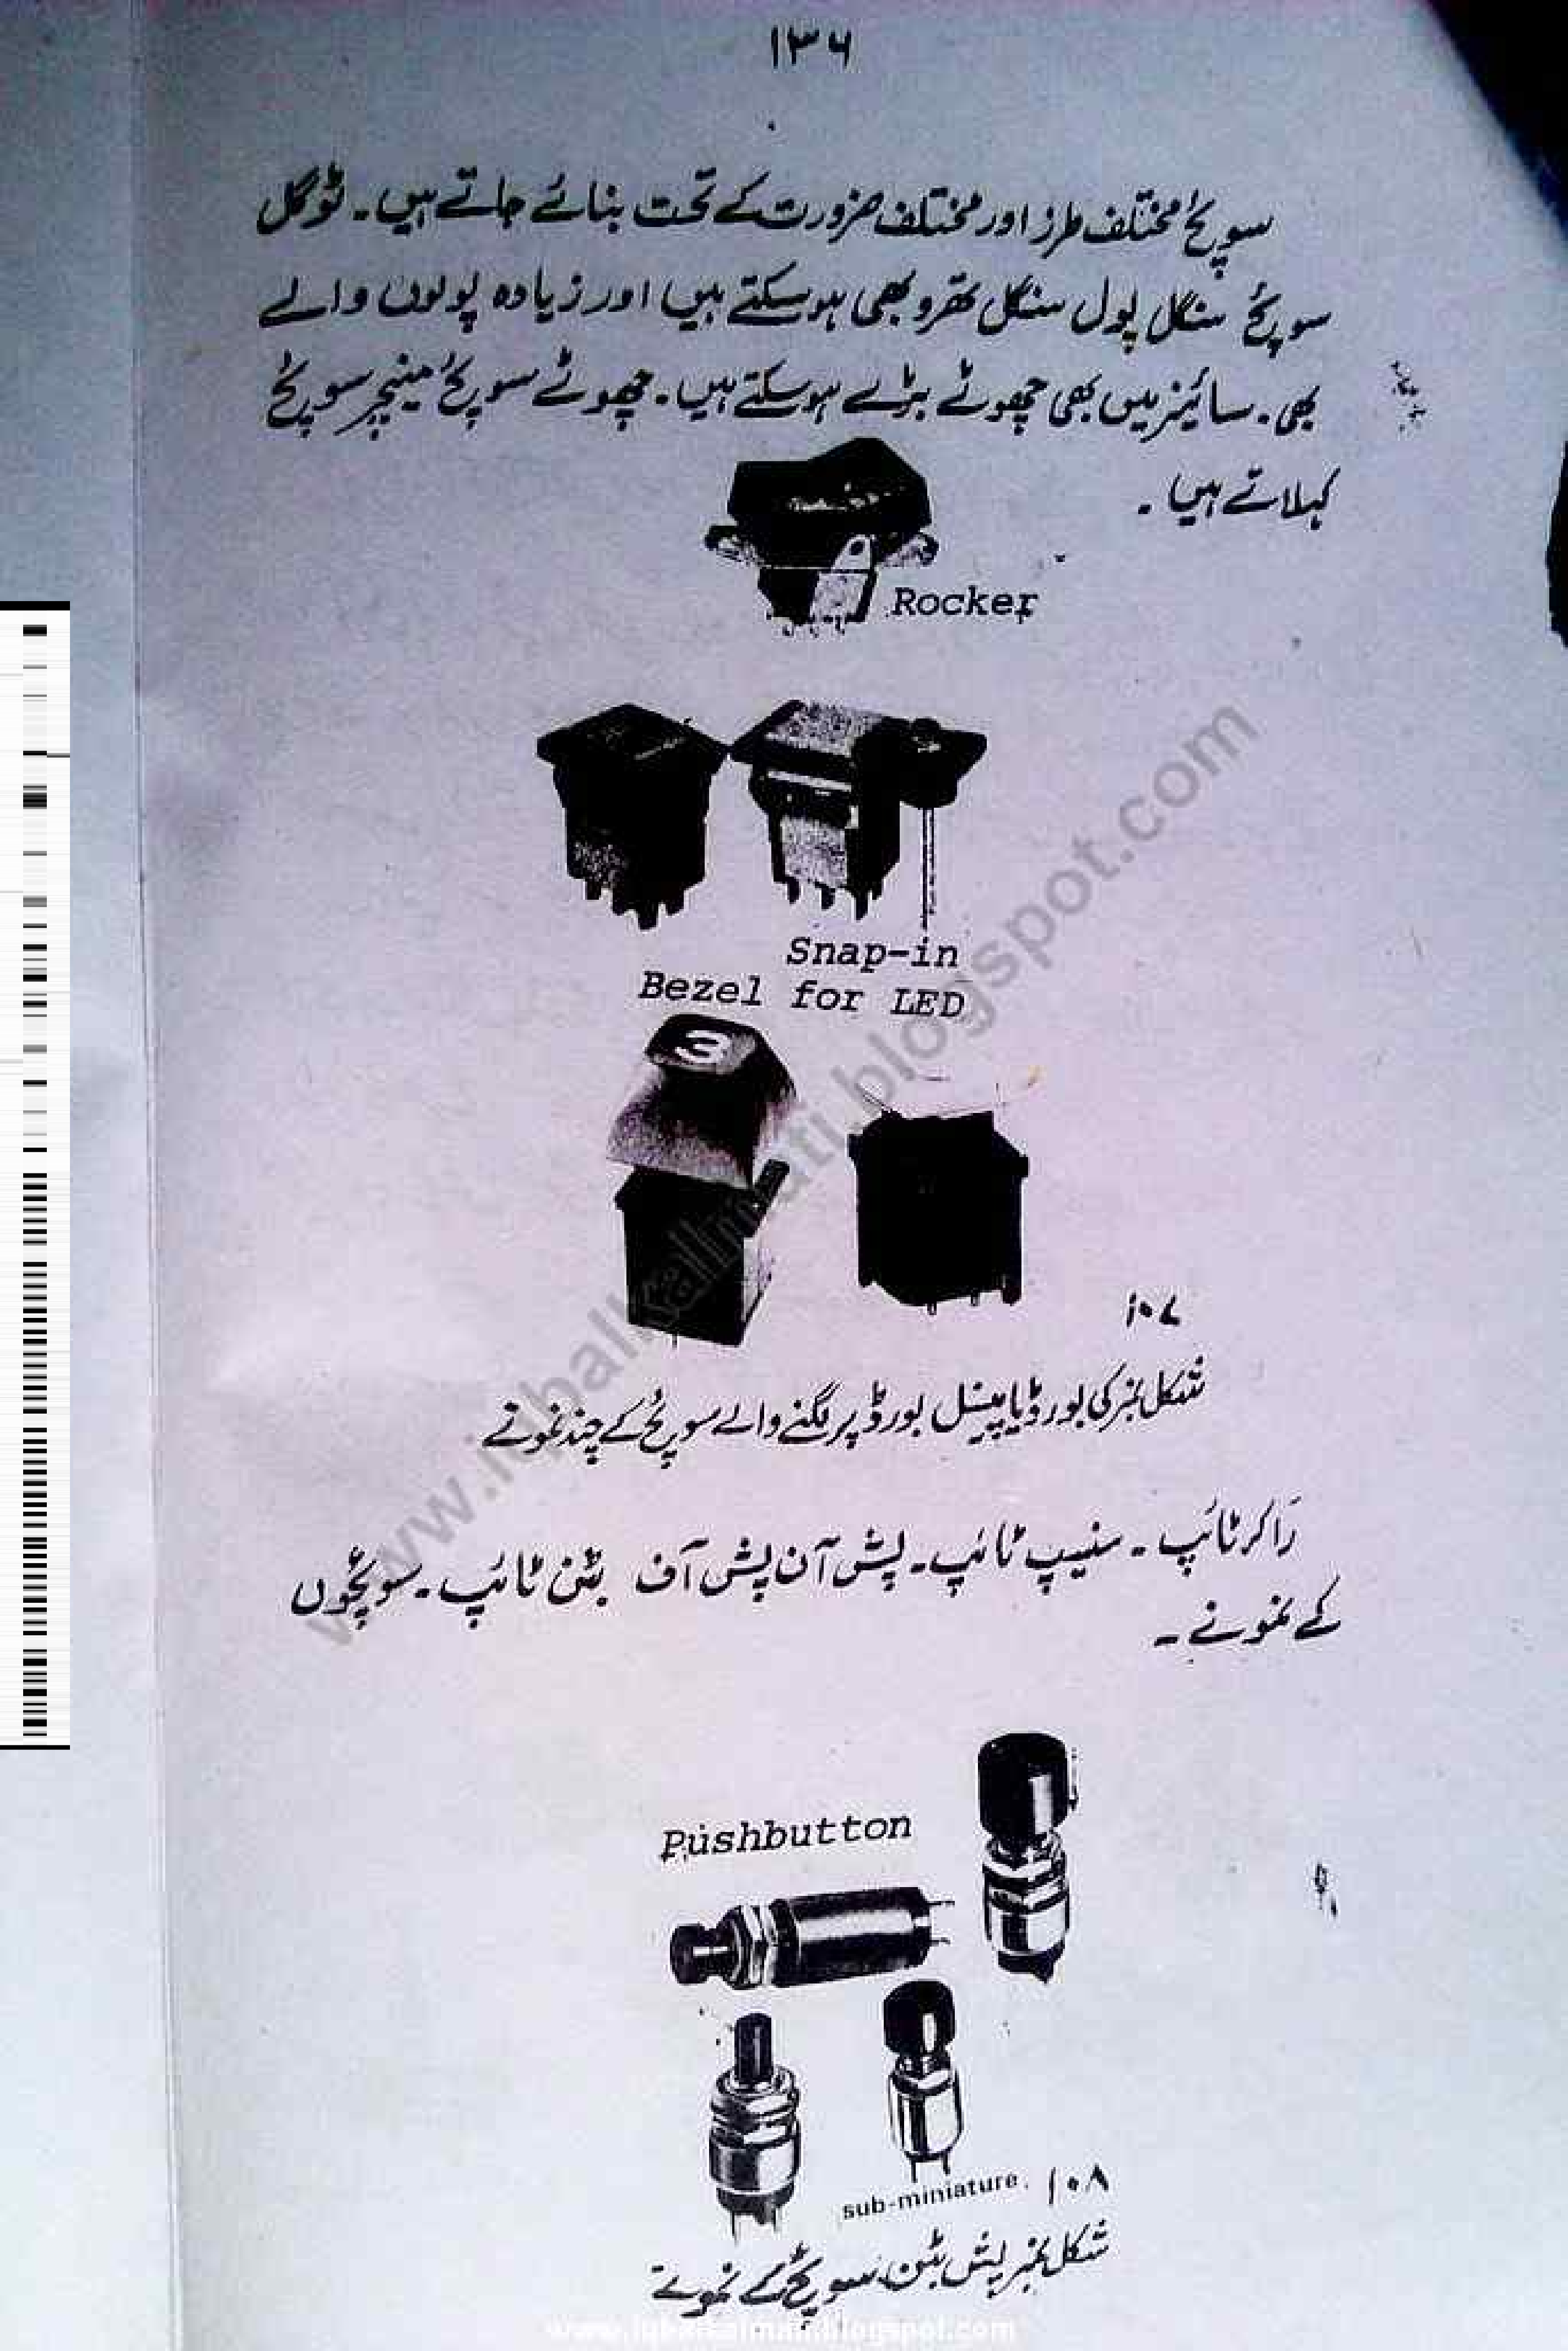 ۱۳۶
سوئچ مختلف طرز اور مختلف ضرورت کے تحت بنائے جاتے ہیں۔ ٹوگل
سوئچ سنگل پول سنگل تھرو بھی ہوسکتے ہیں اور زیادہ پولوں والے
بھی۔ سائیز میں بھی چھوٹے بڑے ہوسکتے ہیں۔ چھوٹے سوئچ مینیچر سوئچ
کہلاتے ہیں۔
Rocker
Snap-in
Bezel for LED
3
۱۰۷
شکل نمبر کی بورڈ یا پینل بورڈ پر لگنے والے سوئچ کے چند نمونے
راکر ٹائپ۔ سنیپ ٹائپ۔ پش آن پش آف بٹن ٹائپ۔ سوئچوں
کے نمونے۔
Pushbutton
sub-miniature. ۱۰۸
شکل نمبر پش بٹن سوئچ کے نمونے
www.iqbalkalmati.blogspot.com
www.iqbalkalmati.blogspot.com